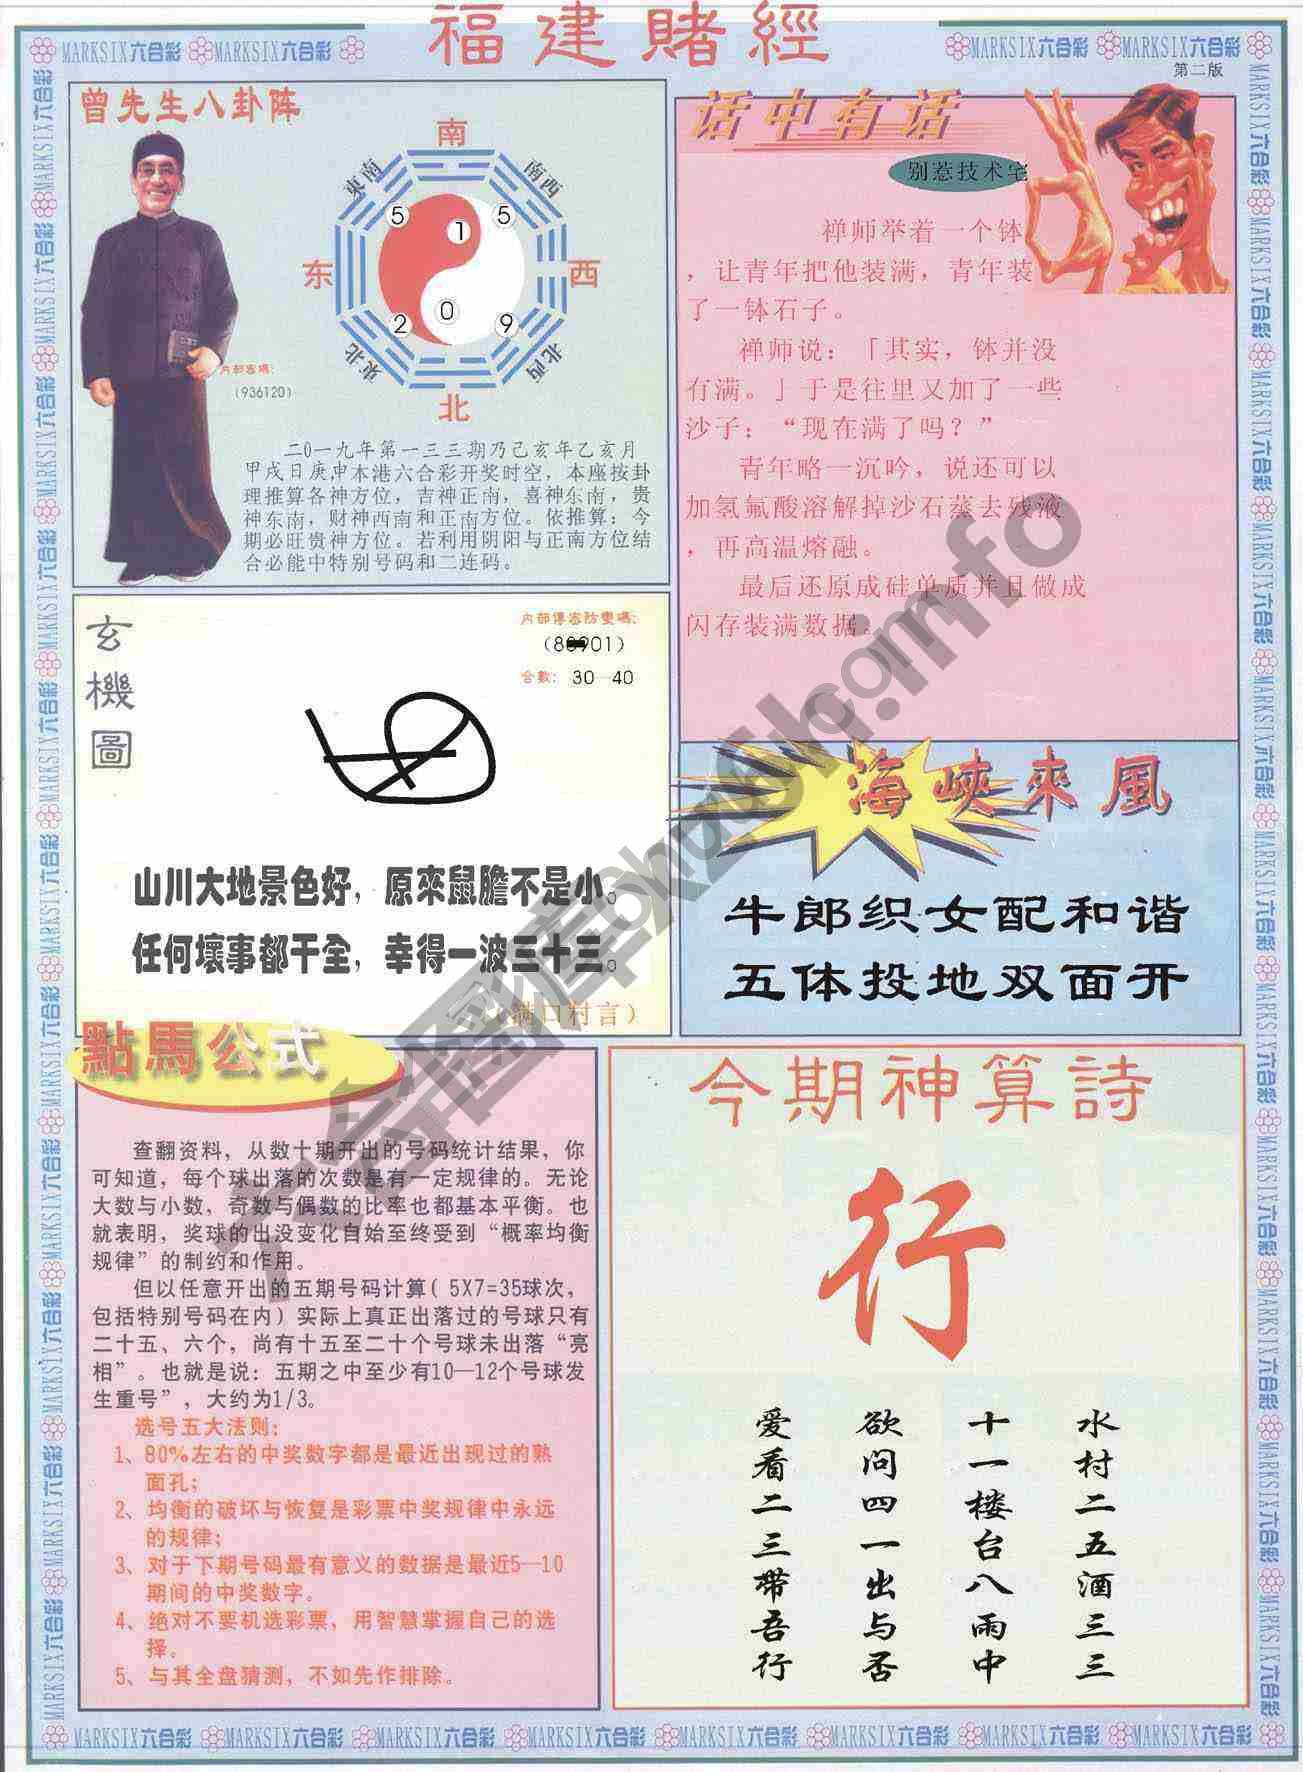 福建賭經
第二版
MARKSIX六合彩
曾先生八卦阵
南
東南
南西
5
1
5
东
西
2
0
9
東北
北西
北
内部密碼:
(936120)
二0一九年第一三三期乃己亥年乙亥月
甲戌日庚申本港六合彩开奖时空，本座按卦
理推算各神方位，吉神正南，喜神东南，贵
神东南，财神西南和正南方位。依推算：今
期必旺贵神方位。若利用阴阳与正南方位结
合必能中特别号码和二连码。
话中有话
别惹技术宅
禅师举着一个钵
，让青年把他装满，青年装
了一钵石子。
禅师说：「其实，钵并没
有满。」于是往里又加了一些
沙子：“现在满了吗？”
青年略一沉吟，说还可以
加氢氟酸溶解掉沙石蒸去残液
，再高温熔融。
最后还原成硅单质并且做成
闪存装满数据。
玄機圖
内部傳密防變碼:
01)
合數: 30—40
山川大地景色好，原來鼠膽不是小。
任何壞事都干全，幸得一波三十三。
(满口村言)
海峽來風
牛郎织女配和谐
五体投地双面开
點馬公式
查翻资料，从数十期开出的号码统计结果，你
可知道，每个球出落的次数是有一定规律的。无论
大数与小数，奇数与偶数的比率也都基本平衡。也
就表明，奖球的出没变化自始至终受到“概率均衡
规律”的制约和作用。
但以任意开出的五期号码计算( 5X7=35球次，
包括特别号码在内) 实际上真正出落过的号球只有
二十五、六个，尚有十五至二十个号球未出落“亮
相”。也就是说：五期之中至少有10—12个号球发
生重号”，大约为1/3。
选号五大法则:
1、80%左右的中奖数字都是最近出现过的熟
面孔;
2、均衡的破坏与恢复是彩票中奖规律中永远
的规律;
3、对于下期号码最有意义的数据是最近5—10
期间的中奖数字。
4、绝对不要机选彩票，用智慧掌握自己的选
择。
5、与其全盘猜测，不如先作排除。
今期神算詩
行
水村二五酒三三
十一楼台八雨中
欲问四一出与否
爱看二三带吾行